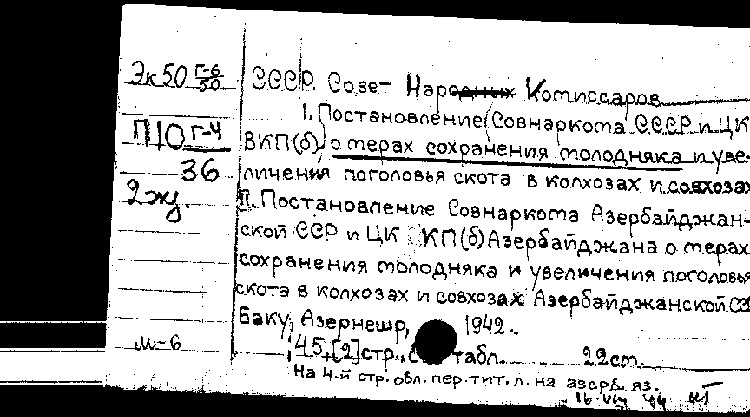 Эк50 Г-6/50
П10 Г-4
36
2 жд.
м-6
СССР. Совет Народных Комиссаров
I. Постановление (Совнаркома СССР и ЦК
ВКП(б)) о мерах сохранения молодняка и уве-
личения поголовья скота в колхозах и совхозах
II. Постановление Совнаркома Азербайджан-
ской ССР и ЦК КП(б) Азербайджана о мерах
сохранения молодняка и увеличения поголовья
скота в колхозах и совхозах Азербайджанской СС
Баку, Азернешр, 1942.
45,[2] стр., с табл. 22 см.
На 4-й стр. обл. пер. тит. л. на азерб. яз.